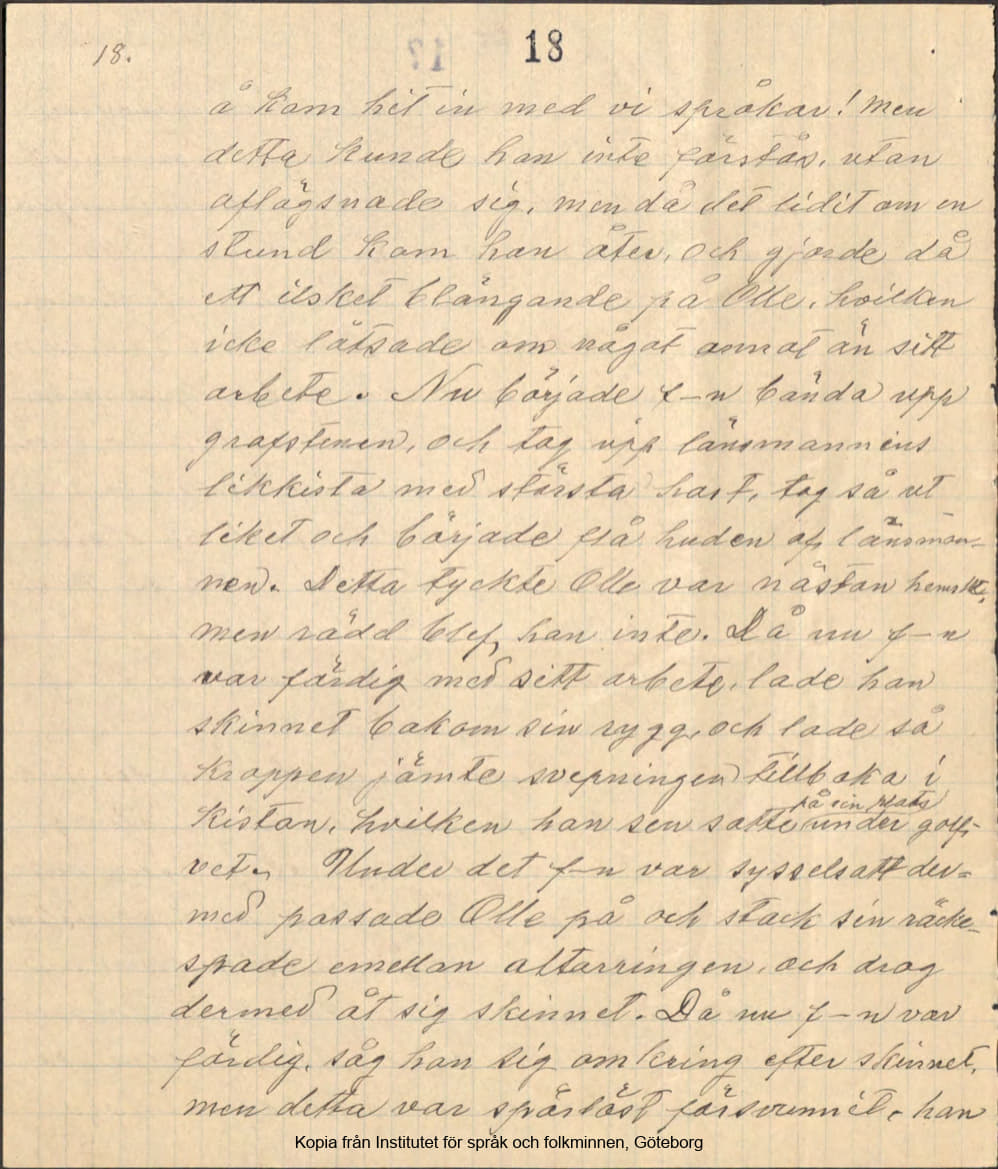 18.
18
å kom hit in med vi språkar! Men
detta kunde han inte förstås, utan
aflägsnade sig, men då det lidit om en
stund kom han åter, och gjorde då
ett ilsket blängande på Olle, hvilken
icke låtsade om något annat än sitt
arbete. Nu började f-n bända upp
grafstenen, och tog upp länsmannens
likkista med största hast, tog så ut
liket och började flå huden af länsman-
nen. Detta tyckte Olle var nästan hemskt,
men rädd blef han inte. Då nu f-n
var färdig med sitt arbete, lade han
skinnet bakom sin rygg, och lade så
kroppen jämte svepningen tillbaka i
kistan, hvilken han sen satte på sin plats under golf-
vet. Under det f-n var sysselsatt der-
med passade Olle på och stack sin räcke-
spade emellan altarringen, och drog
dermed åt sig skinnet. Då nu f-n var
färdig, såg han sig omkring efter skinnet,
men detta var spårlöst försvunnit, han
Kopia från Institutet för språk och folkminnen, Göteborg